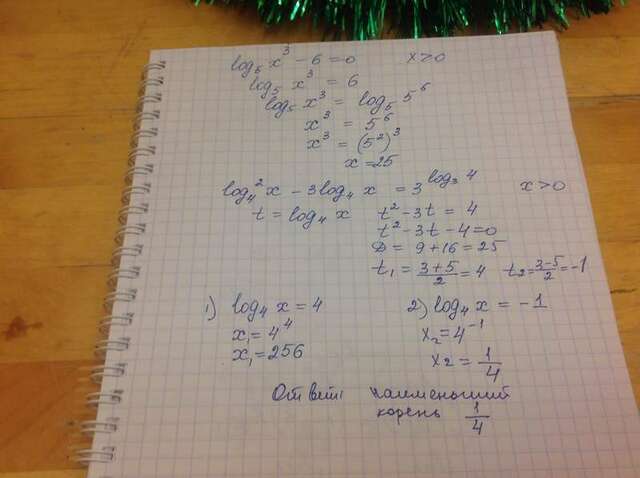 log₅ x³ − 6 = 0 x>0
log₅ x³ = 6
log₅ x³ = log₅ 5⁶
x³ = 5⁶
x³ = (5²)³
x = 25
log₄² x − 3log₄ x = 3^(log₃ 4) x>0
t = log₄ x t² − 3t = 4
t² − 3t − 4 = 0
D = 9 + 16 = 25
t₁ = (3+5)/2 = 4 t₂ = (3−5)/2 = −1
1) log₄ x = 4 2) log₄ x = −1
x₁ = 4⁴ x₂ = 4⁻¹
x₁ = 256 x₂ = 1/4
Ответ: наименьший
корень 1/4